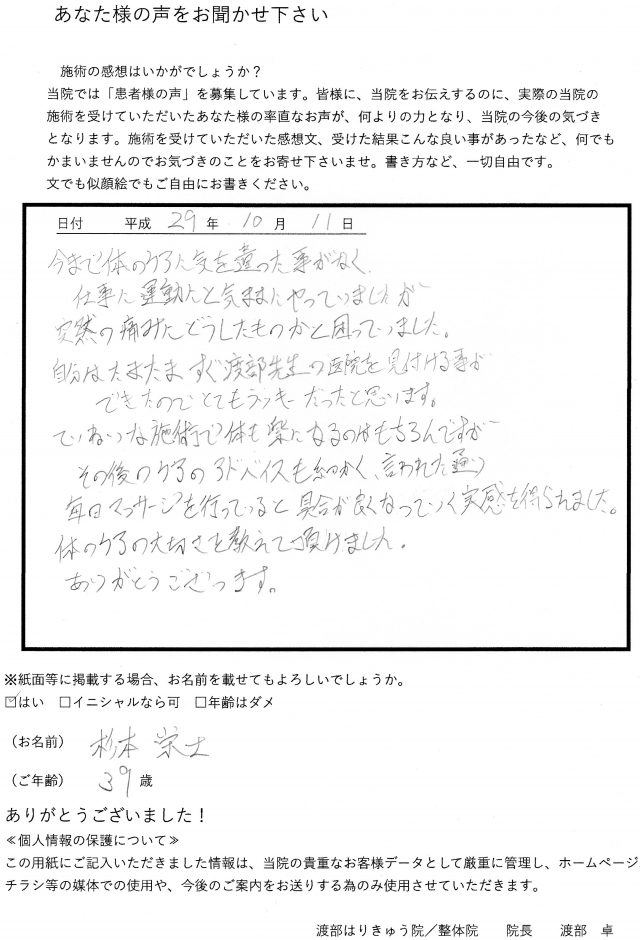 あなた様の声をお聞かせ下さい
施術の感想はいかがでしょうか?
当院では「患者様の声」を募集しています。皆様に、当院をお伝えするのに、実際の当院の
施術を受けていただいたあなた様の率直なお声が、何よりの力となり、当院の今後の気づき
となります。施術を受けていただいた感想文、受けた結果こんな良い事があったなど、何でも
かまいませんのでお気づきのことをお寄せ下さいませ。書き方など、一切自由です。
文でも似顔絵でもご自由にお書きください。
日付 平成 29 年 10 月 11 日
今まで体のケアに気を遣った事がなく
仕事に運動にと気ままにやっていましたが
突然の痛みにどうしたものかと困っていました。
自分はたまたますぐ渡部先生の医院を見付ける事が
できたのでとてもラッキーだったと思います。
ていねいな施術で体も楽になるのはもちろんですが
その後のケアのアドバイスも細かく、言われた通り
毎日マッサージを行っていると具合が良くなっていく実感を得られました。
体のケアの大切さを教えて頂けました。
ありがとうございます。
※紙面等に掲載する場合、お名前を載せてもよろしいでしょうか。
☑はい □イニシャルなら可 □年齢はダメ
(お名前) 杉本 栄士
(ご年齢) 39 歳
ありがとうございました!
≪個人情報の保護について≫
この用紙にご記入いただきました情報は、当院の貴重なお客様データとして厳重に管理し、ホームページ
チラシ等の媒体での使用や、今後のご案内をお送りする為のみ使用させていただきます。
渡部はりきゅう院/整体院 院長 渡部 卓